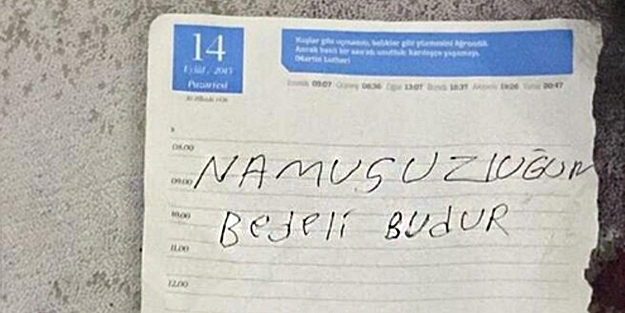 14
Eylül, 2015
Pazartesi
Kuşlar gibi uçmasını, balıklar gibi yüzmesini öğrendik
Ancak basit bir sanatı unuttuk: kardeşçe yaşamayı.
(Martin Luther)
İmsak 05:07 Güneş 06:36 Öğle 13:07 İkindi 16:37 Akşam 19:26 Yatsı 20:47
08.00
NAMUSUZLUĞUN
09.00
10.00
Bedeli BUdUR
11.00
12.00